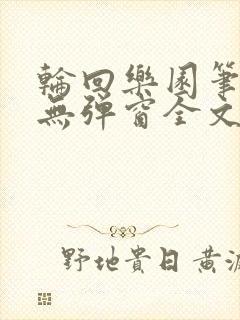 輪回樂園筆
無彈窗全文
野地貴日黃